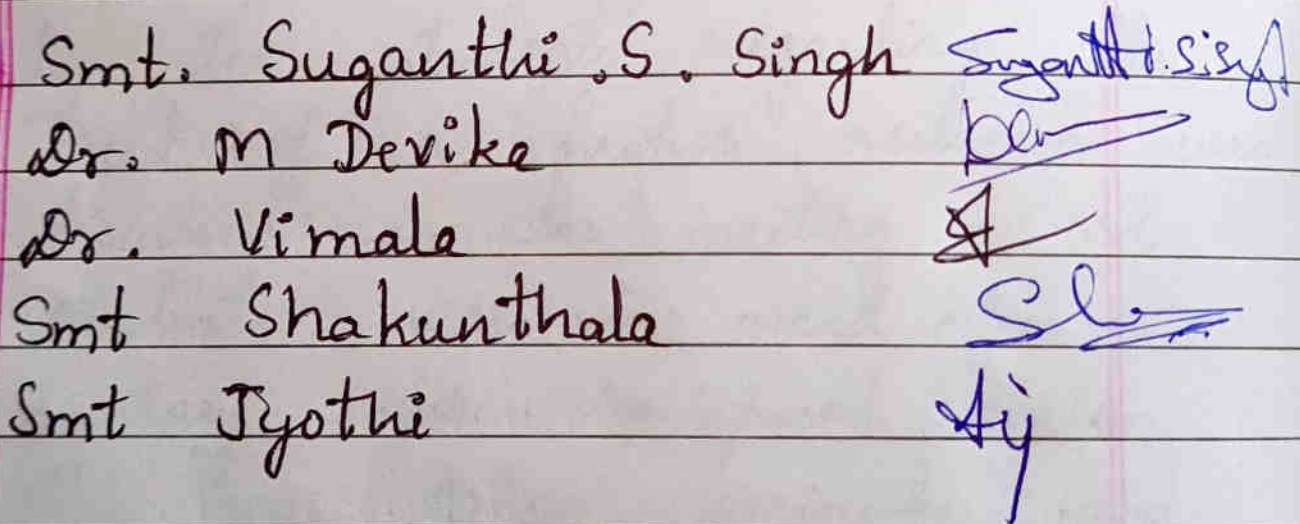 Smt. Suganthi .S. Singh
Dr. M Devika
Dr. Vimala
Smt Shakunthala
Smt Jyothi